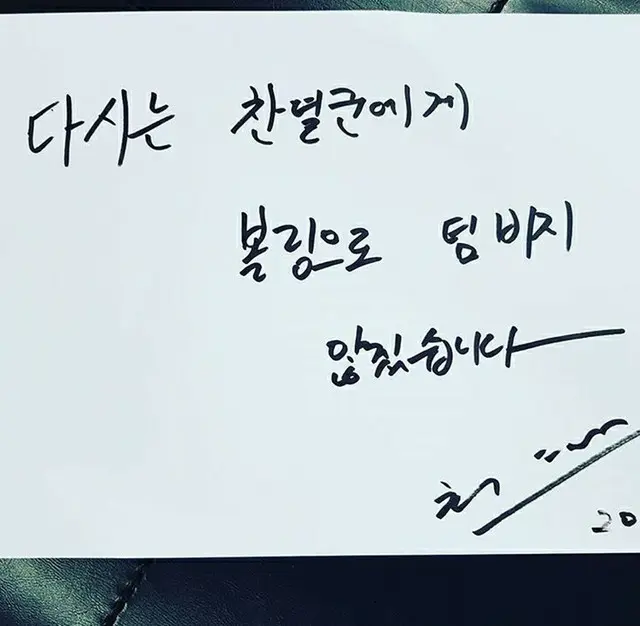 다시는 찬열군에게
볼링으로 덤비지
않겠습니다
20